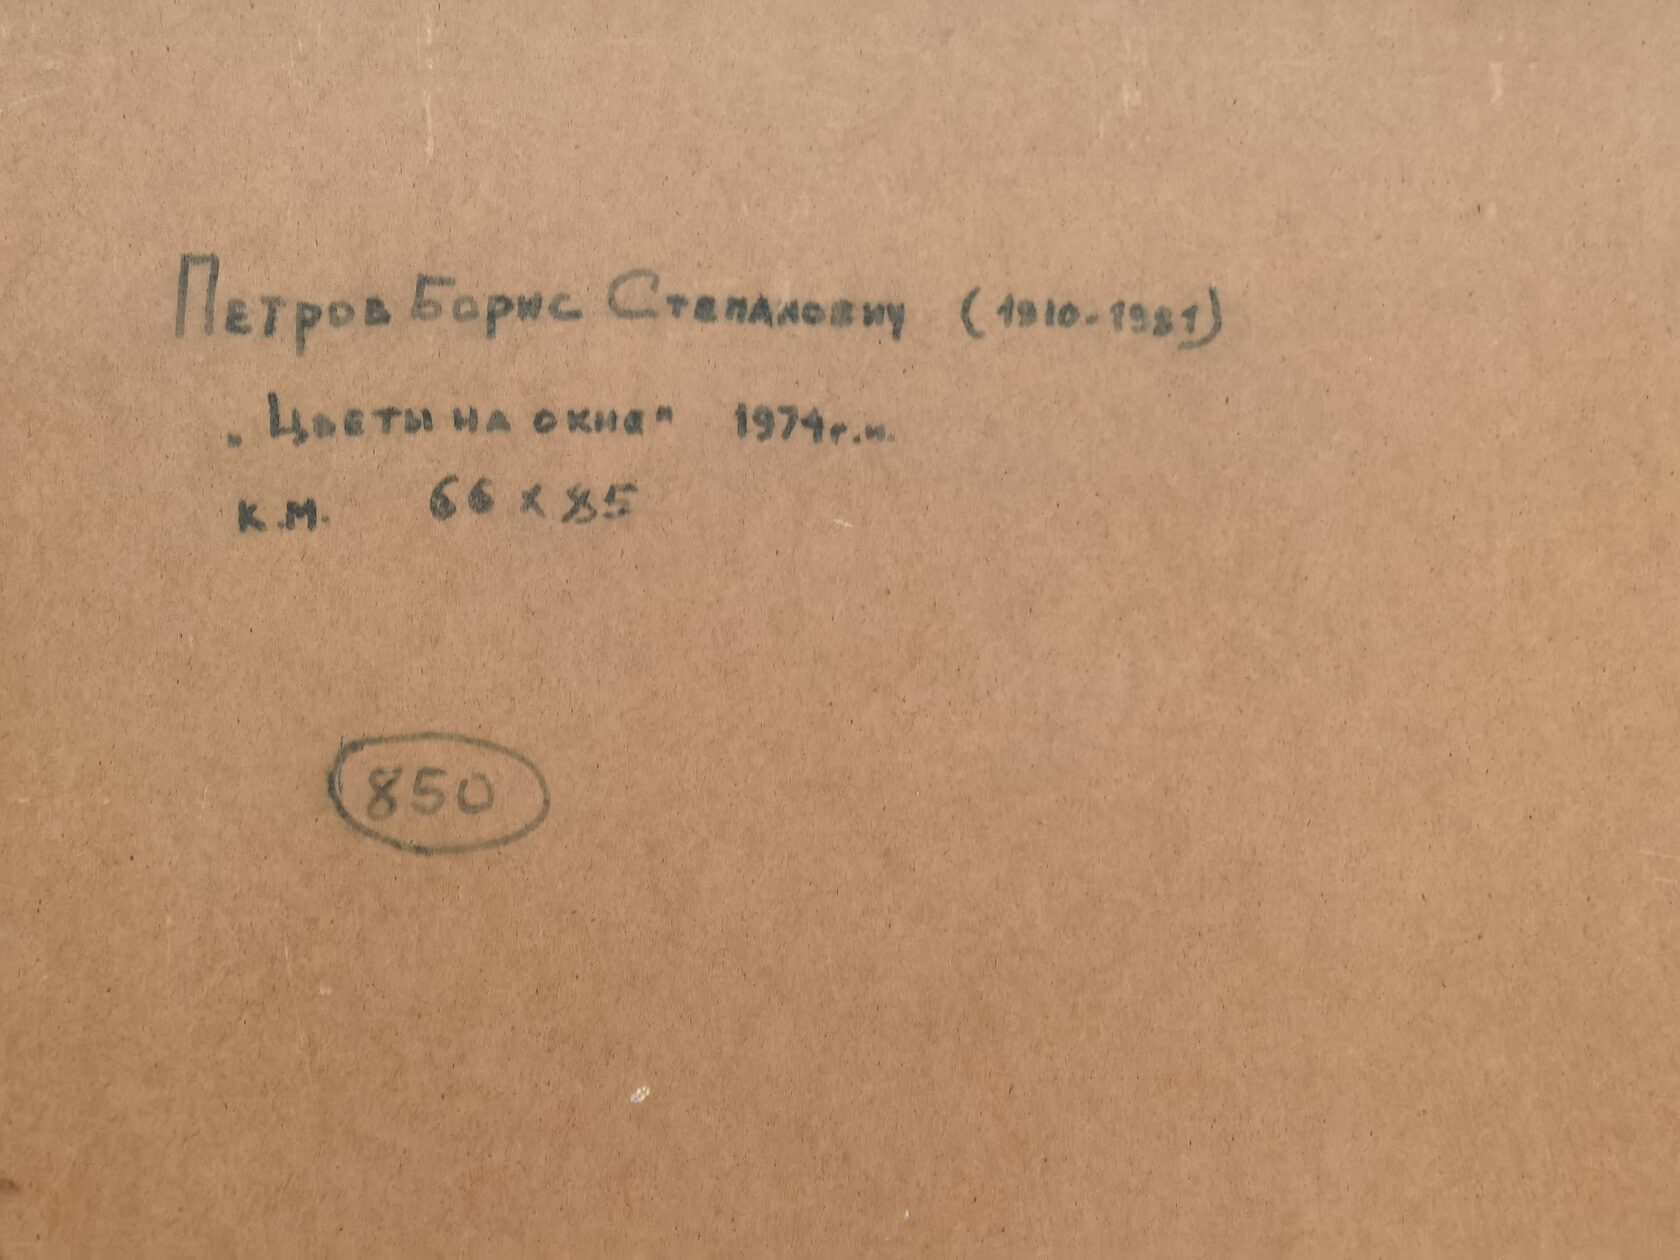 Петров Борис Степанович (1910-1981)
„Цветы на окне" 1974г.н.
к.м. 66 x 85
850